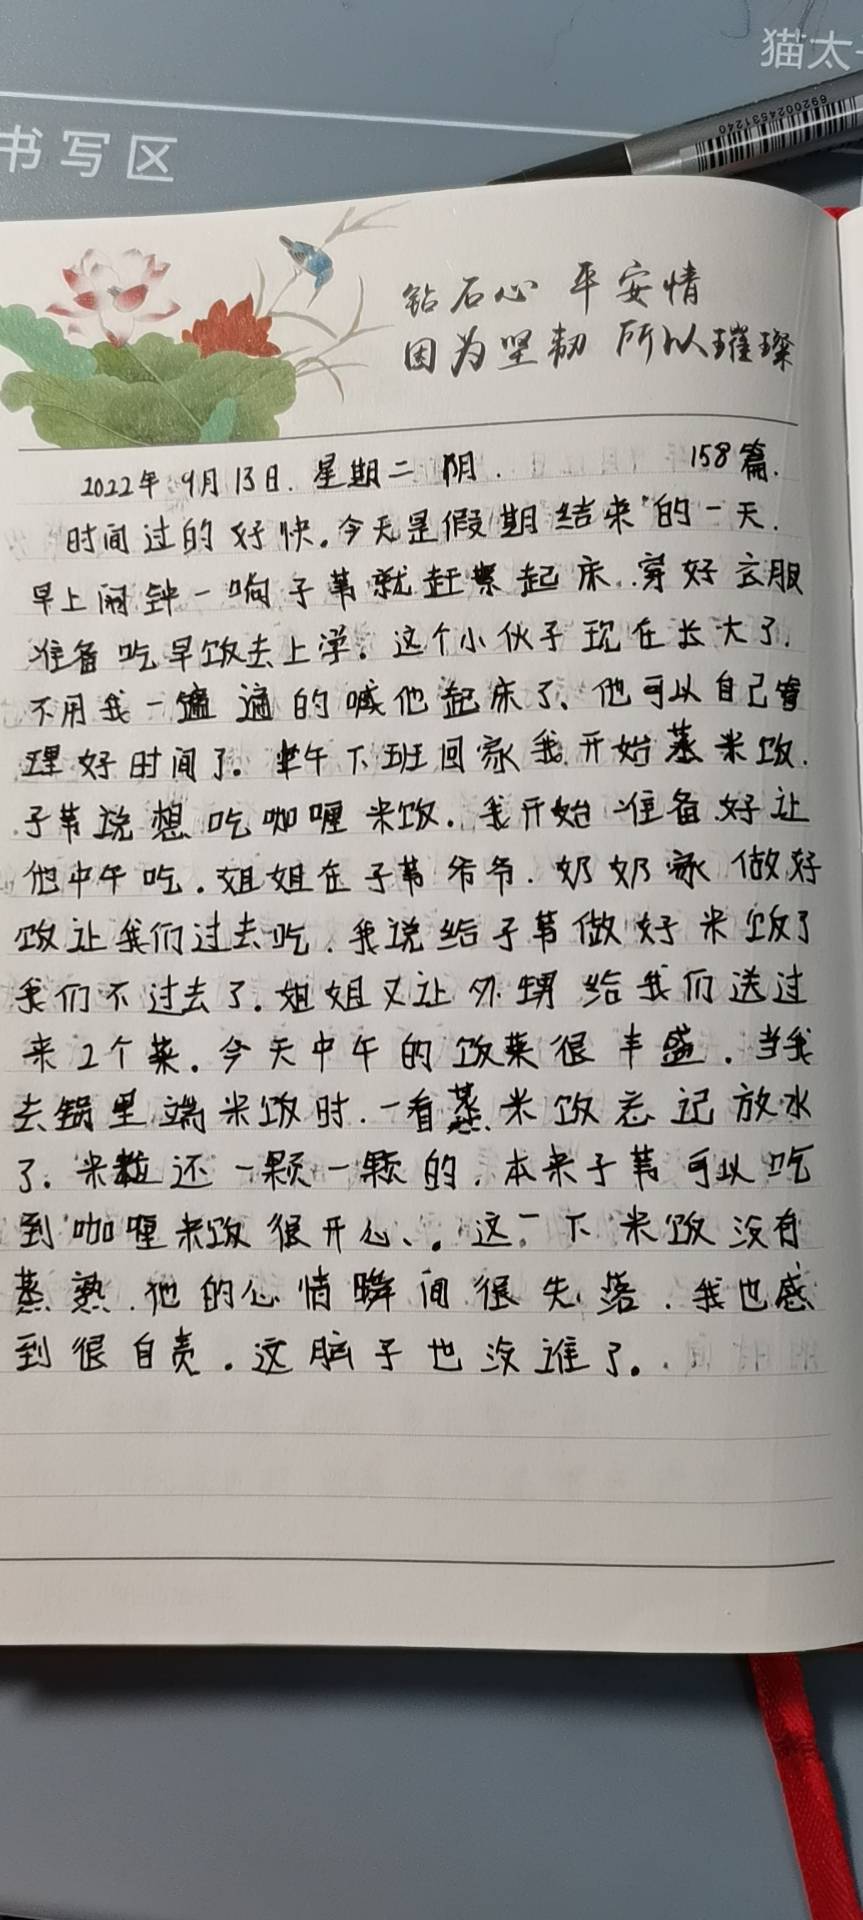 猫太
6920024531240
书写区
钻石心 平安情
因为坚韧 所以璀璨
2022年9月13日. 星期二 阴. 158篇.
时间过的好快。今天是假期结束的一天.
早上闹钟一响子苇就赶紧起床.穿好衣服
准备吃早饭去上学。这个小伙子现在长大了.
不用我一遍遍的喊他起床了、他可以自己管
理好时间了。中午下班回家我开始蒸米饭.
子苇说想吃咖喱米饭.我开始准备好让
他中午吃.姐姐在子苇爷爷.奶奶家做好
饭让我们过去吃.我说给子苇做好米饭了
我们不过去了.姐姐又让外甥给我们送过
来2个菜.今天中午的饭菜很丰盛.当我
去锅里端米饭时.一看蒸米饭忘记放水
了.米粒还一颗一颗的.本来子苇可以吃
到咖喱米饭很开心、.这一下米饭没有
蒸熟.他的心情瞬间很失落.我也感
到很自责.这脑子也没谁了.